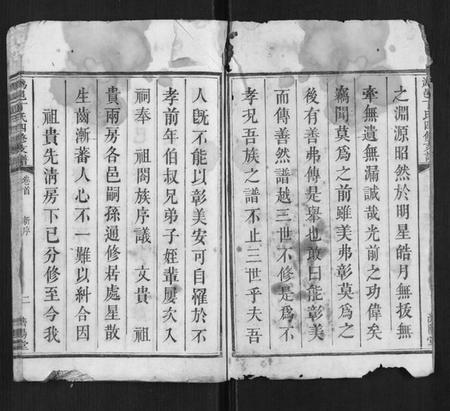 之淵源昭然於明星皓月無拔無
牽無遺無漏誠哉光前之功偉矣
竊聞莫爲之前雖美弗彰莫爲之
後有善弗傳是舉也敢曰能彰美
而傳善然譜越三世不修是爲不
孝現吾族之譜不止三世乎夫吾
人既不能以彰美安可自罹於不
孝前年伯叔兄弟子姪輩屢次入
祠奉 祖闔族序議 文貴 祖
貴兩房各邑嗣孫通修居處星散
生齒漸蕃人心不一難以糾合因
祖貴先淸房下已分修至今我
氏四修支譜
卷首 新序
二